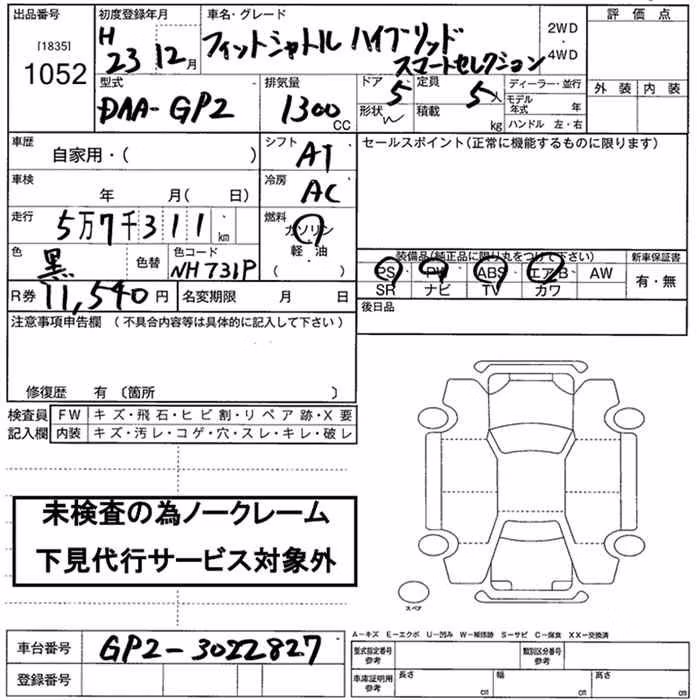 出品番号 初度登録年月 車名・グレード 評価点
[1835] 1052 H 23 12月 フィットシャトル ハイブリッド スマートセレクション 2WD・4WD
型式 排気量 ドア 定員 ディーラー・並行 外装 内装
DAA-GP2 1300 CC 5 5人 モデル年式 年
形状 積載 kg ハンドル 左・右
車歴 シフト セールスポイント(正常に機能するものに限ります)
自家用・( ) AT
車検 冷房
年 月( 日) AC
走行 燃料
5万7千311 km ガソリン
色 色コード 軽・油 装備品(純正品に限り丸をつけて下さい) 新車保証書
黒 色替 NH731P ( ) PS・PW・ABS・エアB AW 有・無
SR ナビ TV カワ
R券 11,540円 名変期限 月 日 後日品
注意事項申告欄 (不具合内容等は具体的に記入して下さい)
修復歴 有 〔箇所 〕
検査員 FW キズ・飛石・ヒビ割・リペア跡・X要
記入欄 内装 キズ・汚レ・コゲ・穴・スレ・キレ・破レ
未検査の為ノークレーム
下見代行サービス対象外
スペア
A-キズ E-エクボ U-凹み W-補修跡 S-サビ C-腐食 XX-交換済
車台番号 GP2-3022827 型式指定番号 参考 類別区分番号 参考
登録番号 車庫証明用 参考 長さ cm 幅 cm 高さ cm